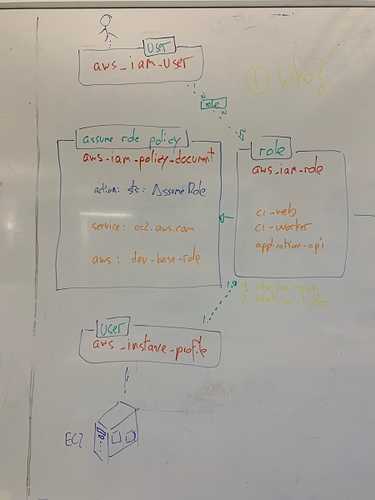 user
aws_iam_user
role
assume role policy
aws_iam_policy_document
action: sts: AssumeRole
service: ec2.aws.com
aws: dev-base-role
role
aws_iam_role
ci-web
ci-worker
application-api
user
aws_instance_profile
EC2